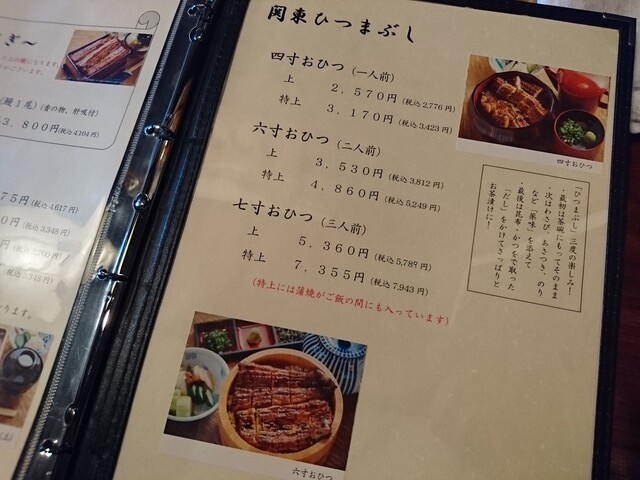 関東ひつまぶし
四寸おひつ（一人前）
上 2，570円（税込2,776円）
特上 3，170円（税込3,423円）
六寸おひつ（二人前）
上 3，530円（税込3,812円）
特上 4，860円（税込5,249円）
七寸おひつ（三人前）
上 5，360円（税込5,789円）
特上 7，355円（税込7,943円）
（特上には蒲焼がご飯の間にも入っています）
四寸おひつ
「ひつまぶし」三度の楽しみ！
・最初は茶碗にもってそのまま
・次はわさび、あさつき、のり
など「薬味」を添えて
・最後は昆布・かつをで取った
「だし」をかけてさっぱりと
お茶漬けに！
六寸おひつ
ぎ～
（鰻1尾）（香の物、肝吸付）
3，800円（税込4,104円）
75円（税込4,617円）
0円（税込3,348円）
ります。